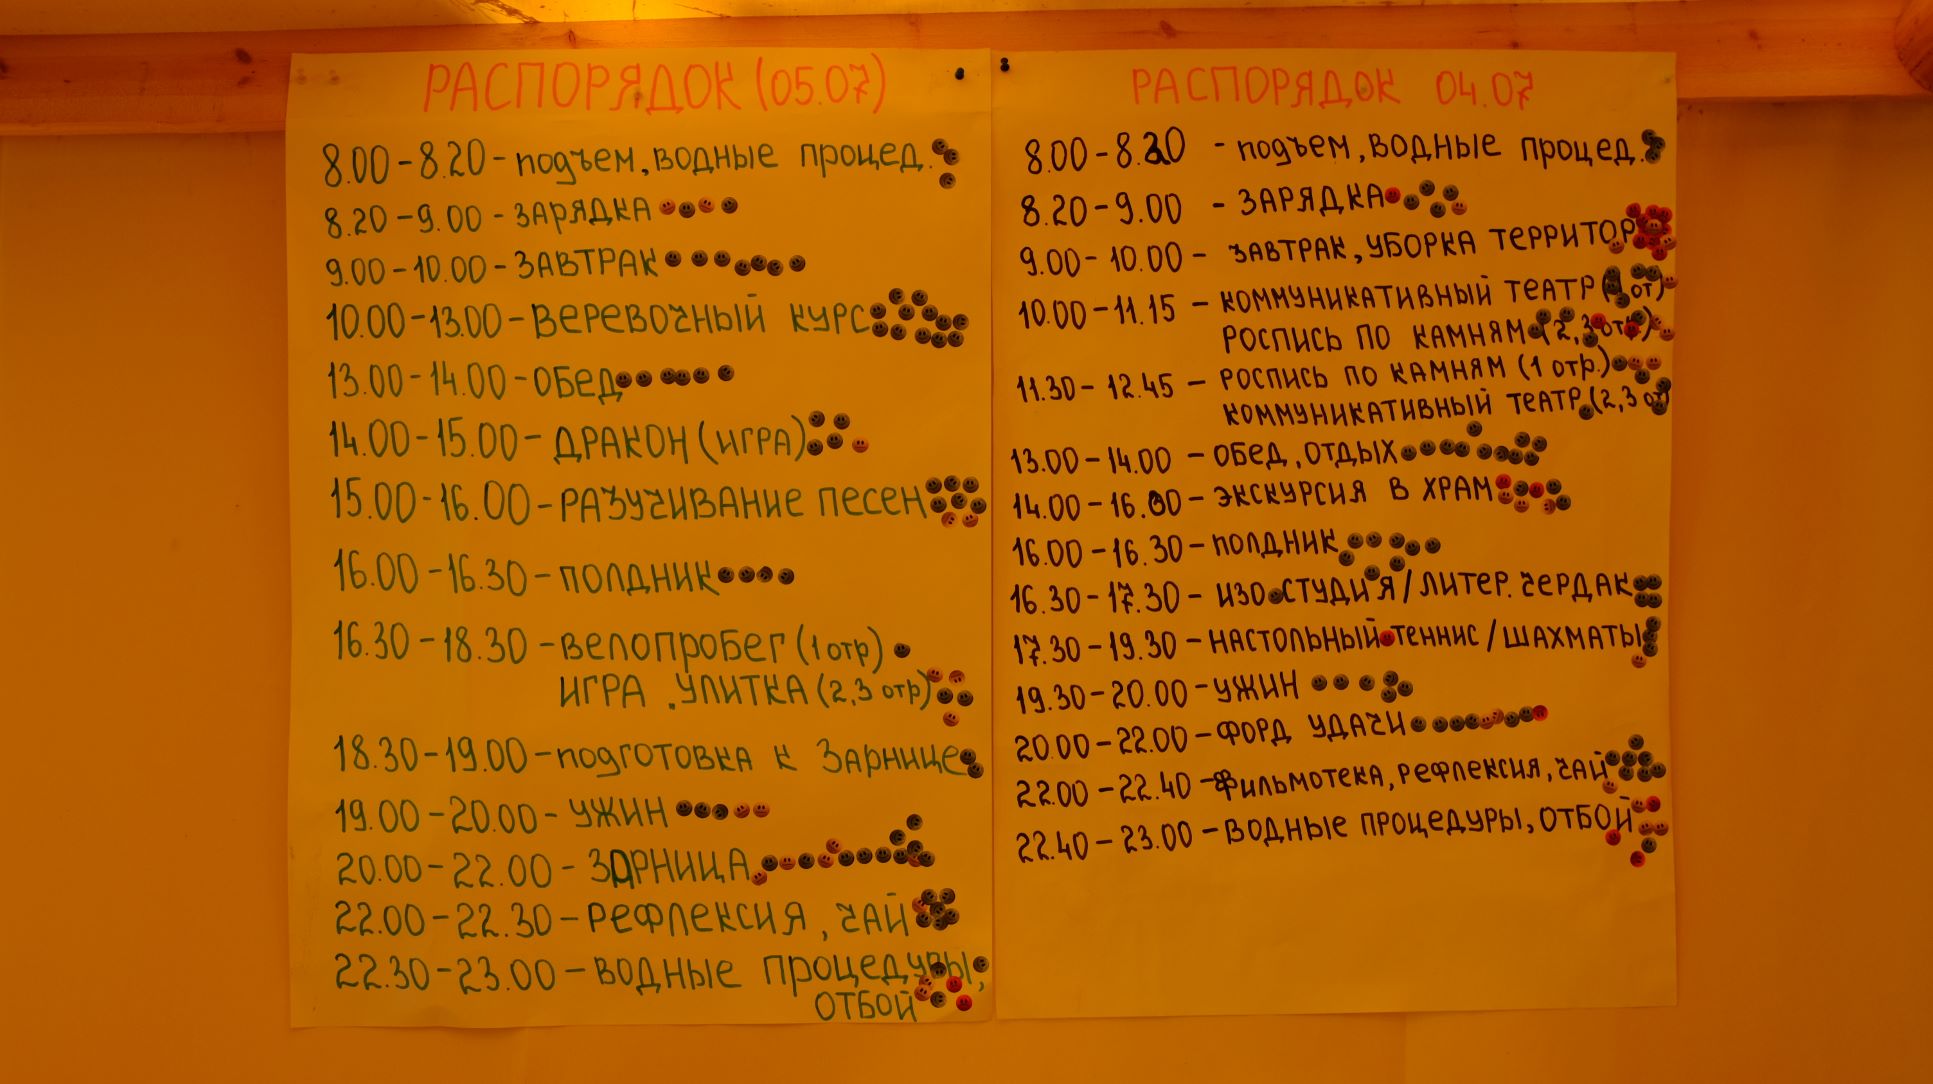 РАСПОРЯДОК (05.07)
8.00 – 8.20 – подъем, водные процед.
8.20 – 9.00 – ЗАРЯДКА
9.00 – 10.00 – ЗАВТРАК
10.00 – 13.00 – ВЕРЕВОЧНЫЙ КУРС
13.00 – 14.00 – ОБЕД
14.00 – 15.00 – ДРАКОН (ИГРА)
15.00 – 16.00 – РАЗУЧИВАНИЕ ПЕСЕН
16.00 – 16.30 – ПОЛДНИК
16.30 – 18.30 – ВЕЛОПРОБЕГ (1 отр)
ИГРА . УЛИТКА (2,3 отр)
18.30 – 19.00 – подготовка к Зарнице
19.00 – 20.00 – УЖИН
20.00 – 22.00 – ЗАРНИЦА
22.00 – 22.30 – РЕФЛЕКСИЯ, ЧАЙ
22.30 – 23.00 – ВОДНЫЕ ПРОЦЕДУРЫ,
ОТБОЙ
РАСПОРЯДОК 04.07
8.00 – 8.20 – подъем, водные процед.
8.20 – 9.00 – ЗАРЯДКА
9.00 – 10.00 – ЗАВТРАК, УБОРКА ТЕРРИТОР
10.00 – 11.15 – КОММУНИКАТИВНЫЙ ТЕАТР (1 от)
РОСПИСЬ ПО КАМНЯМ (2,3 отр)
11.30 – 12.45 – РОСПИСЬ ПО КАМНЯМ (1 отр.)
КОММУНИКАТИВНЫЙ ТЕАТР (2,3 от
13.00 – 14.00 – ОБЕД, ОТДЫХ
14.00 – 16.00 – ЭКСКУРСИЯ В ХРАМ
16.00 – 16.30 – ПОЛДНИК
16.30 – 17.30 – ИЗО СТУДИЯ / ЛИТЕР. ЧЕРДАК
17.30 – 19.30 – НАСТОЛЬНЫЙ ТЕННИС / ШАХМАТЫ
19.30 – 20.00 – УЖИН
20.00 – 22.00 – ФОРД УДАЧИ
22.00 – 22.40 – Фильмотека, РЕФЛЕКСИЯ, ЧАЙ
22.40 – 23.00 – ВОДНЫЕ ПРОЦЕДУРЫ, ОТБОЙ